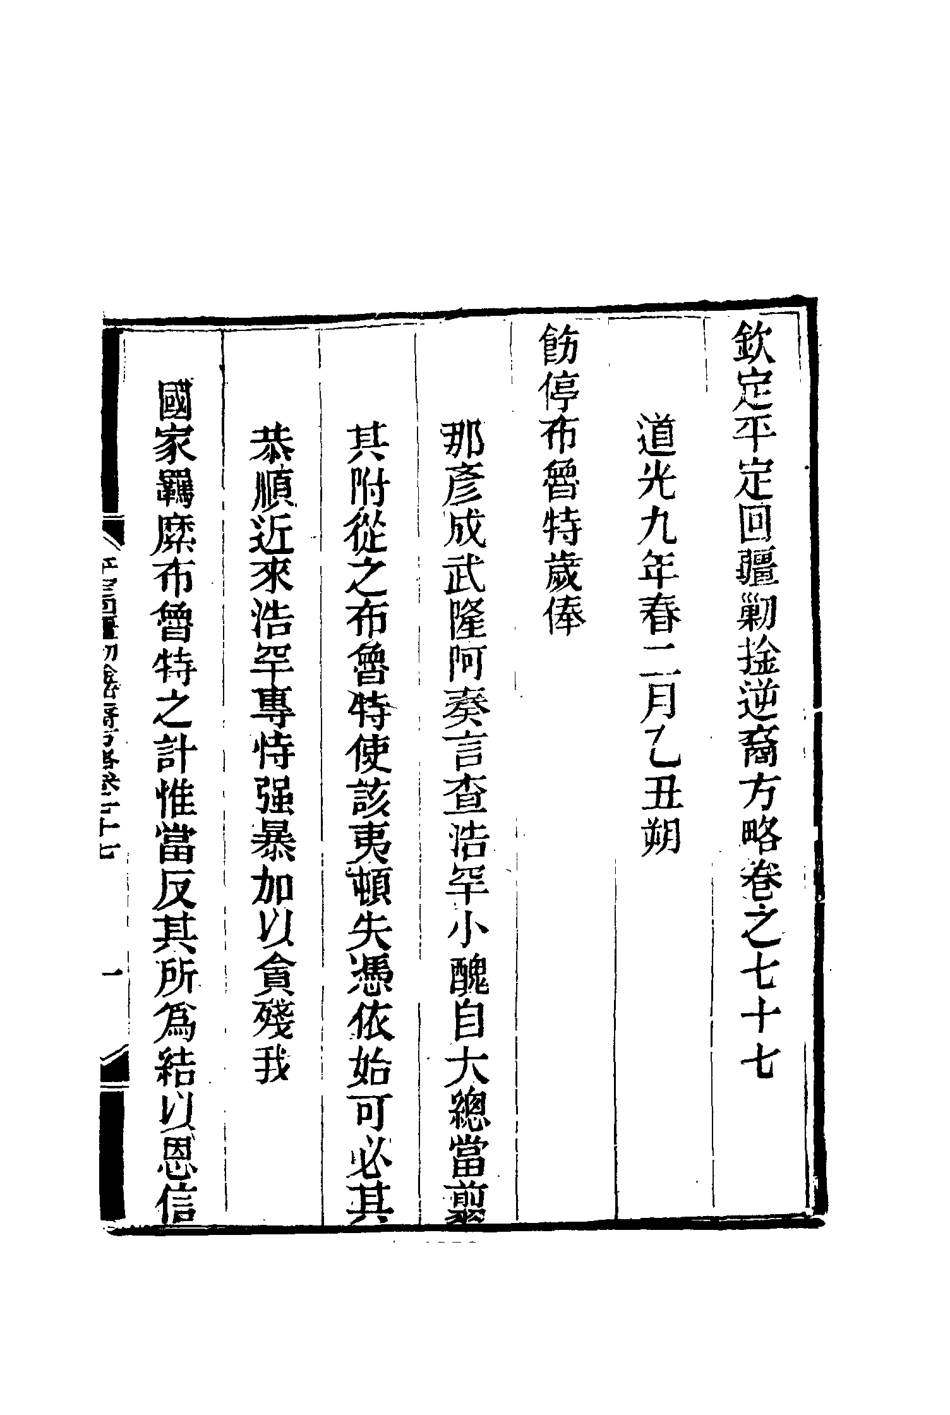 欽定平定回疆勦捦逆裔方略卷之七十七
道光九年春二月乙丑朔
飭停布魯特歲俸
那彥成武隆阿奏言查浩罕小醜自大總當翦
其附從之布魯特使該夷頓失憑依始可必其
恭順近來浩罕專恃强暴加以貪殘我
國家羈縻布魯特之計惟當反其所爲結以恩信
平定回疆勦捦逆裔方略卷七十七
一